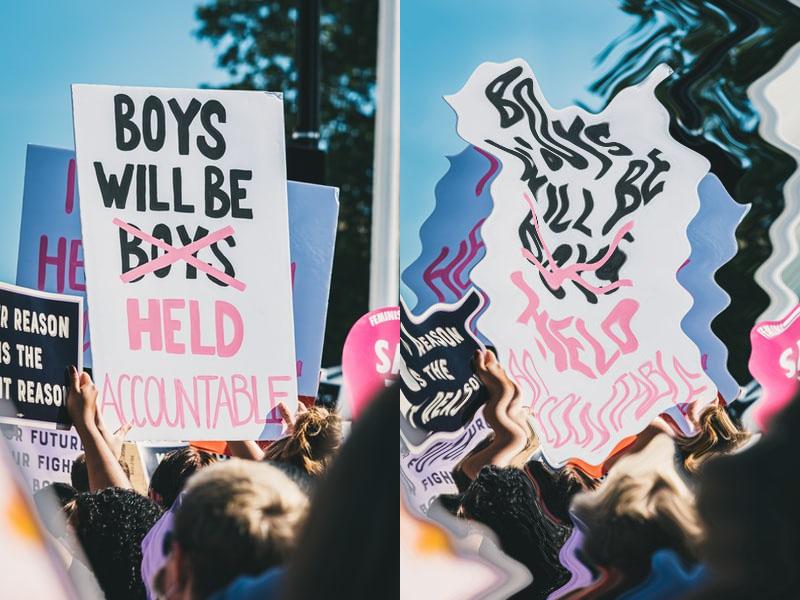 BOYS
WILL BE
BOYS
HELD
ACCOUNTABLE
HE
R REASON
IS THE
T REASON
R FUTUR
UR FIGH
FEMINIS
BOYS
WILL BE
BOYS
HELD
ACCOUNTABLE
HE
REASON
IS THE
T REASON
FUTUR
FIGH
FEMINIS